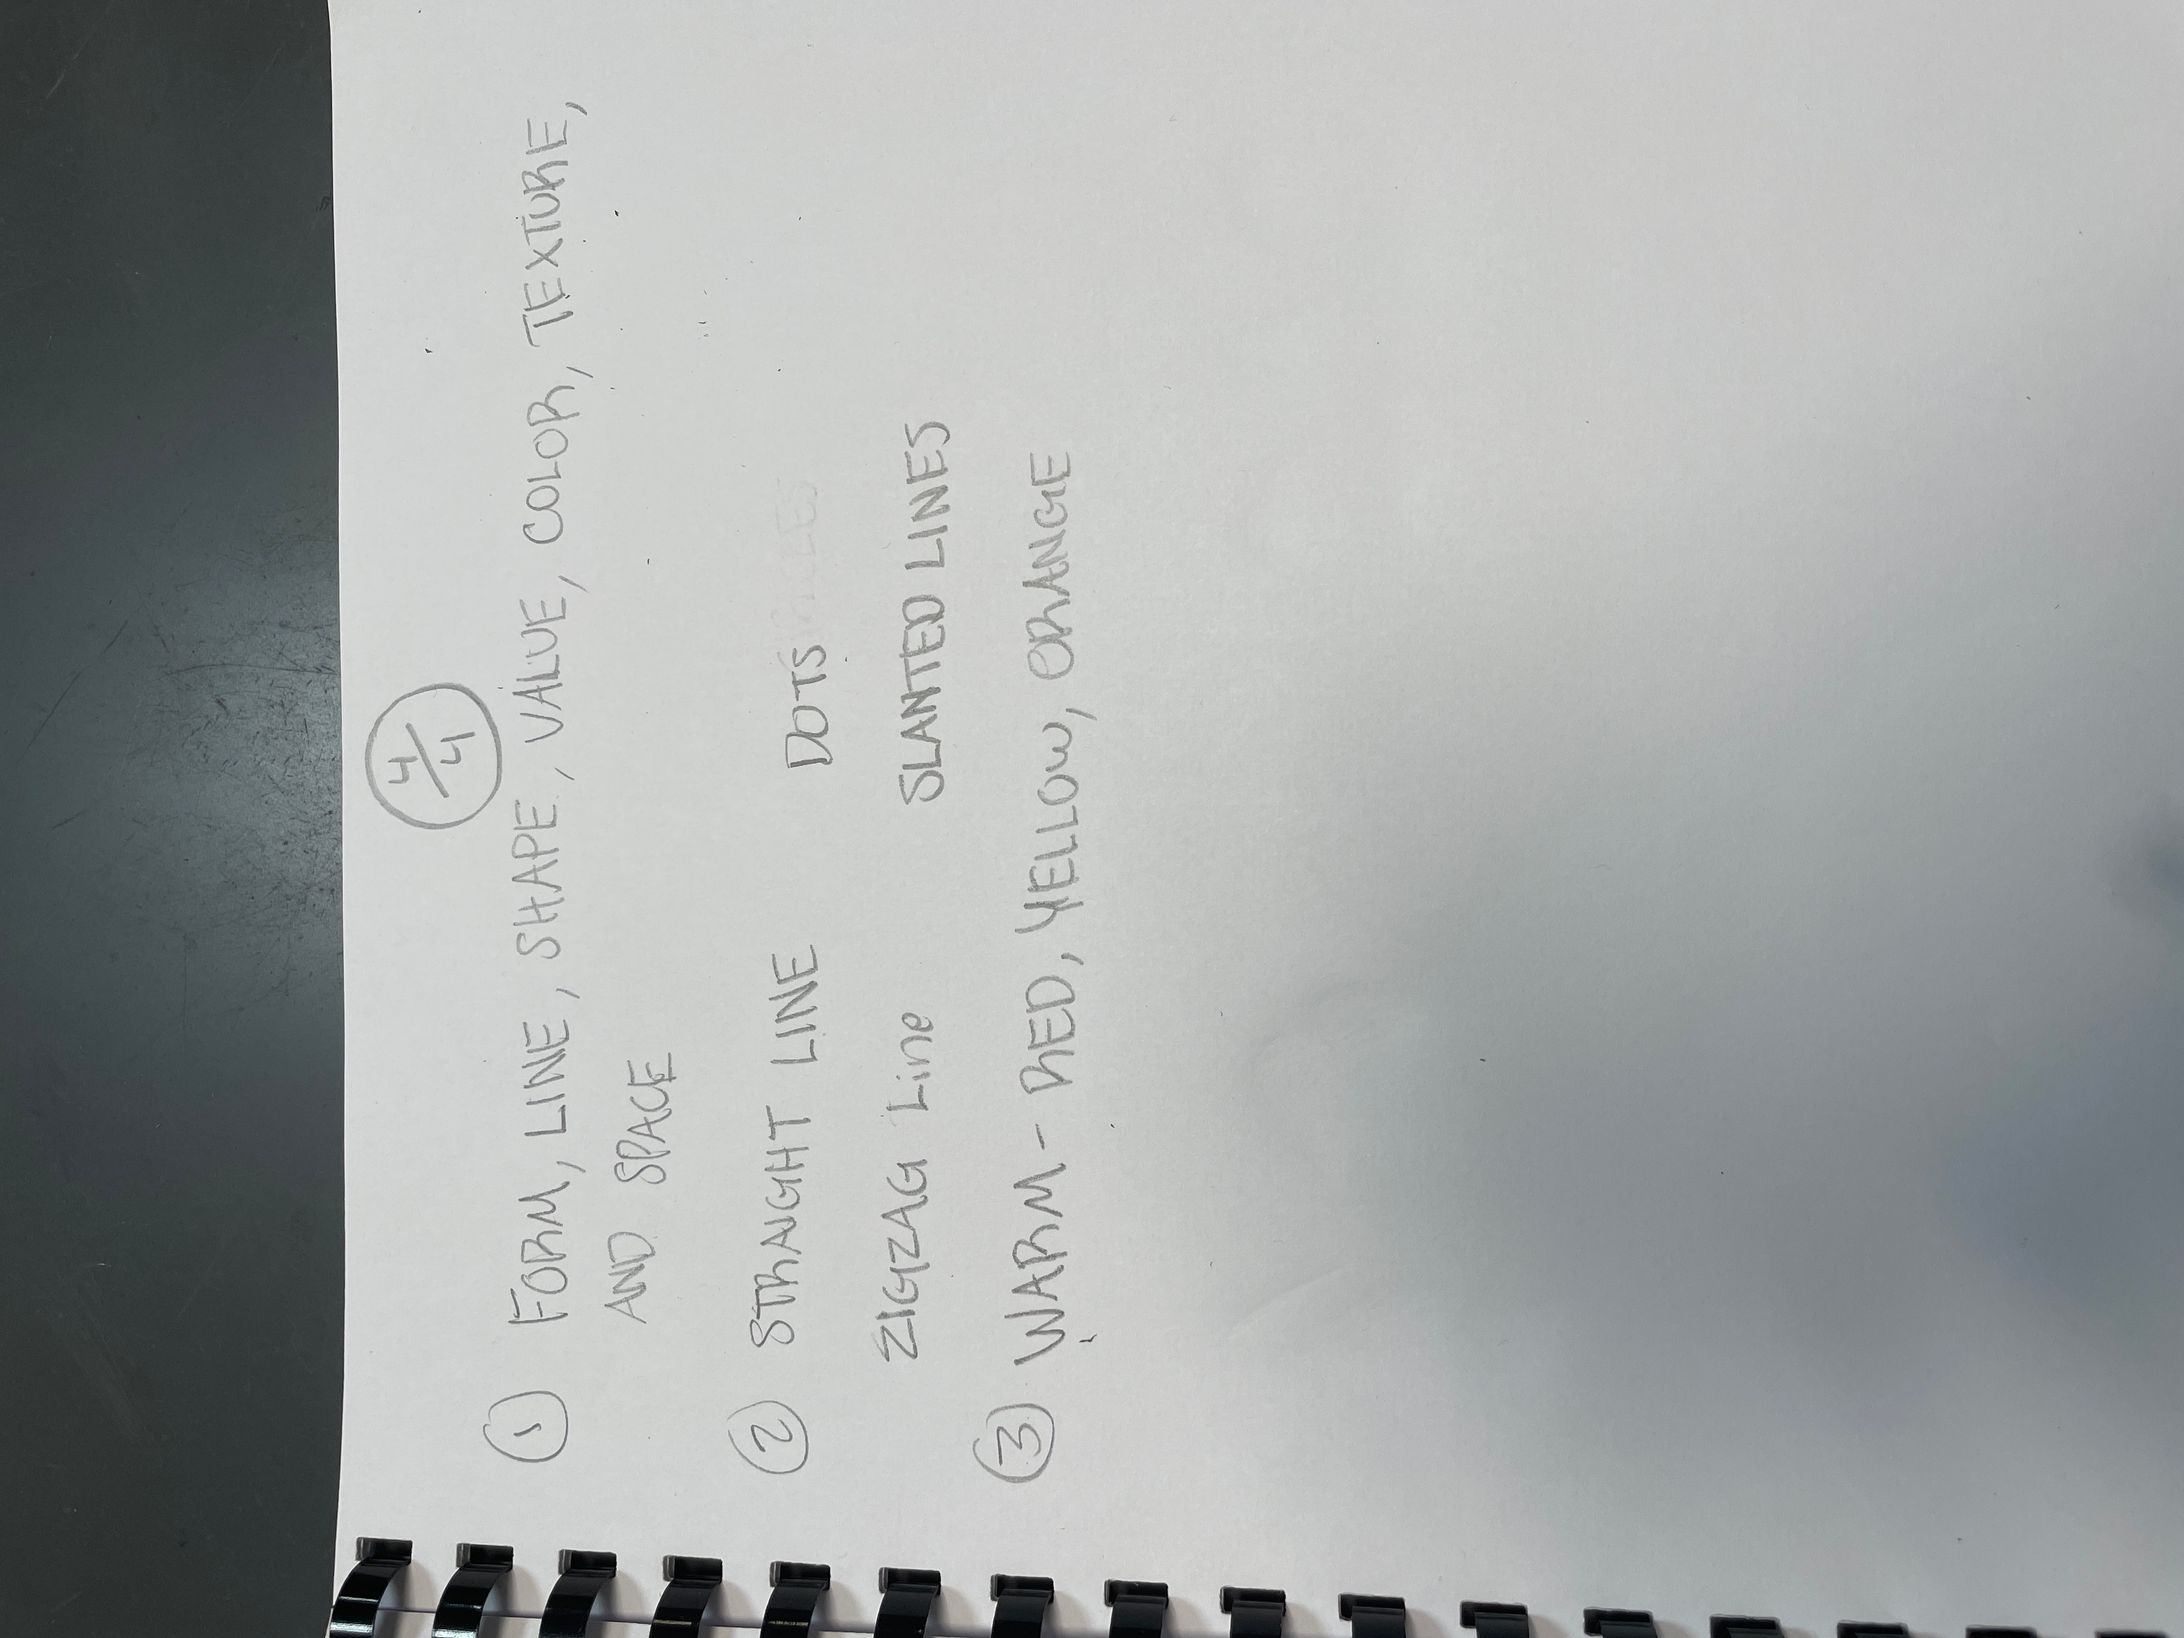 4/4
1 FORM, LINE, SHAPE, VALUE, COLOR, TEXTURE,
AND SPACE
2 STRAIGHT LINE DOTS
ZIGZAG Line SLANTED LINES
3 WARM - RED, YELLOW, ORANGE